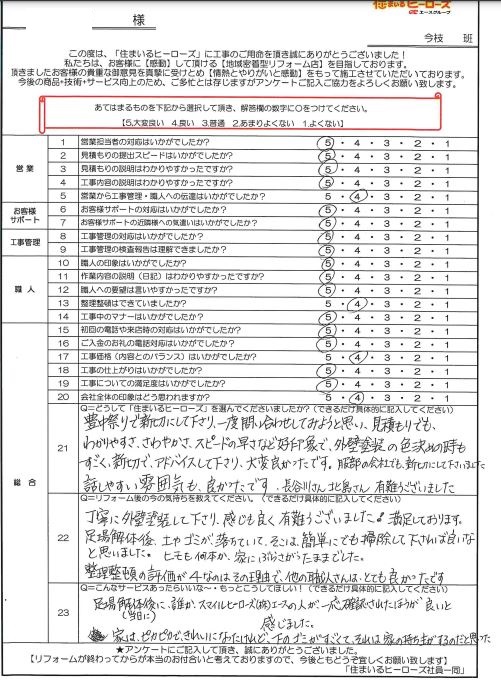 住まいるヒーローズ
エースグループ
様
今枝　班
この度は、「住まいるヒーローズ」に工事のご用命を頂き誠にありがとうございました！
私たちは、お客様に【感動】して頂ける【地域密着型リフォーム店】を目指しております。
頂きましたお客様の貴重な御意見を真摯に受けとめ【情熱とやりがいと感動】をもって施工させていただいております。
今後の商品+技術+サービス向上のため、ご多忙とは存じますがアンケートご記入ご協力をよろしくお願い致します。
あてはまるものを下記から選択して頂き、解答欄の数字に○をつけてください。
【5.大変良い　4.良い　3.普通　2.あまりよくない　1.よくない】
営業
1 営業担当者の対応はいかがでしたか? 5・4・3・2・1
2 見積もりの提出スピードはいかがでしたか? 5・4・3・2・1
3 見積もりの説明はわかりやすかったですか? 5・4・3・2・1
4 工事内容の説明はわかりやすかったですか? 5・4・3・2・1
5 営業から工事管理・職人への伝達はいかがでしたか? 5・4・3・2・1
お客様サポート
6 お客様サポートの対応はいかがでしたか? 5・4・3・2・1
7 お客様サポートの近隣様への気遣いはいかがでしたか? 5・4・3・2・1
工事管理
8 工事管理の対応はいかがでしたか? 5・4・3・2・1
9 工事管理の検査報告は理解できましたか? 5・4・3・2・1
職人
10 職人の印象はいかがでしたか? 5・4・3・2・1
11 作業内容の説明（日記）はわかりやすかったですか? 5・4・3・2・1
12 職人への要望は言いやすかったですか? 5・4・3・2・1
13 整理整頓はできていましたか? 5・4・3・2・1
14 工事中のマナーはいかがでしたか? 5・4・3・2・1
総合
15 初回の電話や来店時の対応はいかがでしたか? 5・4・3・2・1
16 ご入金のお礼の電話対応はいかがでしたか? 5・4・3・2・1
17 工事価格（内容とのバランス）はいかがですか? 5・4・3・2・1
18 工事の仕上がりはいかがでしたか? 5・4・3・2・1
19 工事についての満足度はいかがでしたか? 5・4・3・2・1
20 会社全体の印象はどう思われますか? 5・4・3・2・1
21 Q=どうして「住まいるヒーローズ」を選んでくださいましたか?（できるだけ具体的に記入してください）
豊中祭りで親切にして下さり、一度問い合わせしてみようと思い、見積もりでも、
わかりやすさ、さわやかさ、スピードの早さなど好印象で、外壁塗装の色決めの時も
すごく、親切で、アドバイスして下り、大変良かったです。服部の会社でも、親切にして下さいました
話しやすい雰囲気も、良かったです。長谷川さん 北島さん 有難うございました
22 Q=リフォーム後の今の気持ちを教えてください。（できるだけ具体的に記入してください）
丁寧に外壁塗装して下さり、感じも良く有難うございました。満足しております。
足場解体後、土やゴミが落ちていて、そこは、簡単にでも掃除して下されば良いな
と思いました。ヒモも何本か、家にぶらさがったままでした。
整理整頓の評価が4なのはその理由で、他の職人さんは、とても良かったです
23 Q=こんなサービスあったらいいな～・もっとこうしてほしい！（できるだけ具体的に記入してください）
足場解体後に、誰か、スマイルヒーローズ(株)エースの人が一応確認されたほうが良いと
(当日に)
感じました。
家は、ピカピカで、きれいになたけれど、下のゴミがすごくて、それは家の持ち主がするのだと思った
★アンケートにご記入して頂き、誠にありがとうございました。
【リフォームが終わってからが本当のお付合いと考えておりますので、今後ともどうぞ宜しくお願い致します】
「住まいるヒーローズ社員一同」